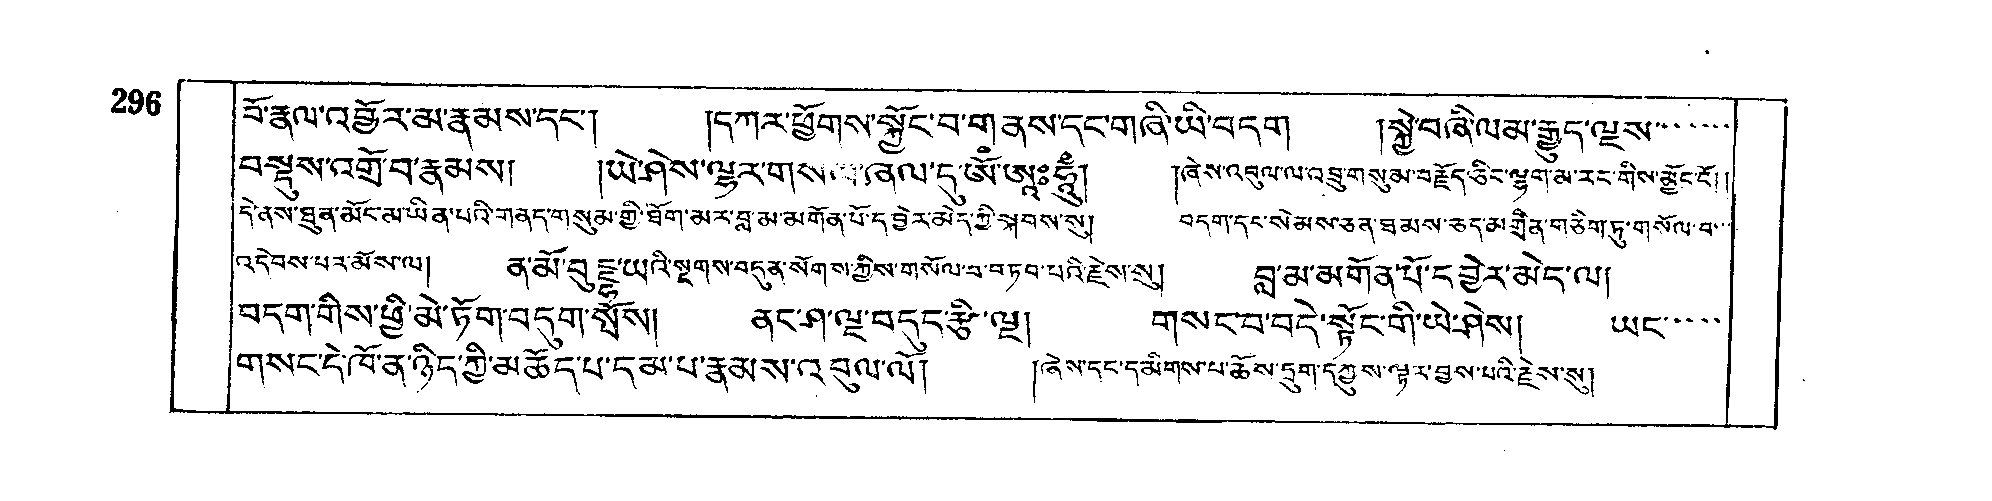 296
བོ་རྣལ་འབྱོར་མ་རྣམས་དང་། །དཀར་ཕྱོགས་སྐྱོང་བ་གནས་དང་གཞི་ཡི་བདག །སྐྱེ་བཞི་ལམ་རྒྱུད་ལྔས་
བསྡུས་འགྲོ་བ་རྣམས། །ཡེ་ཤེས་ལྷར་གསལ་ཞལ་དུ་ཨོཾ་ཨཱཿཧཱུྃ། །ཞེས་འབུལ་ལ་འབྲུ་གསུམ་བརྗོད་ཅིང་ལྷག་མ་རང་གིས་མྱོང་ངོ༌།།
དེ་ནས་ཐུན་མོང་མ་ཡིན་པའི་གནད་གསུམ་གྱི་ཐོག་མར་བླ་མ་མགོན་པོ་ད་བྱེར་མེད་ཀྱི་སྐབས་སུ། བདག་དང་སེམས་ཅན་ཐམས་ཅད་མགྲིན་གཅིག་ཏུ་གསོལ་བ་
འདེབས་པར་མོས་ལ། ན་མོ་བུདྡྷ་ཡའི་སྔགས་བདུན་སོགས་ཀྱིས་གསོལ་བ་བཏབ་པའི་རྗེས་སུ། བླ་མ་མགོན་པོ་ད་བྱེར་མེད་ལ།
བདག་གིས་ཕྱི་མེ་ཏོག་བདུག་སྤོས། ནང་ཤ་ལྔ་བདུད་རྩི་ལྔ། གསང་བ་བདེ་སྟོང་གི་ཡེ་ཤེས། ཡང་
གསང་དེ་ཁོ་ན་ཉིད་ཀྱི་མཆོད་པ་དམ་པ་རྣམས་འབུལ་ལོ། །ཞེས་དང་དམིགས་པ་ཆོས་དྲུག་དཀྱུས་ལྟར་བྱས་པའི་རྗེས་སུ།